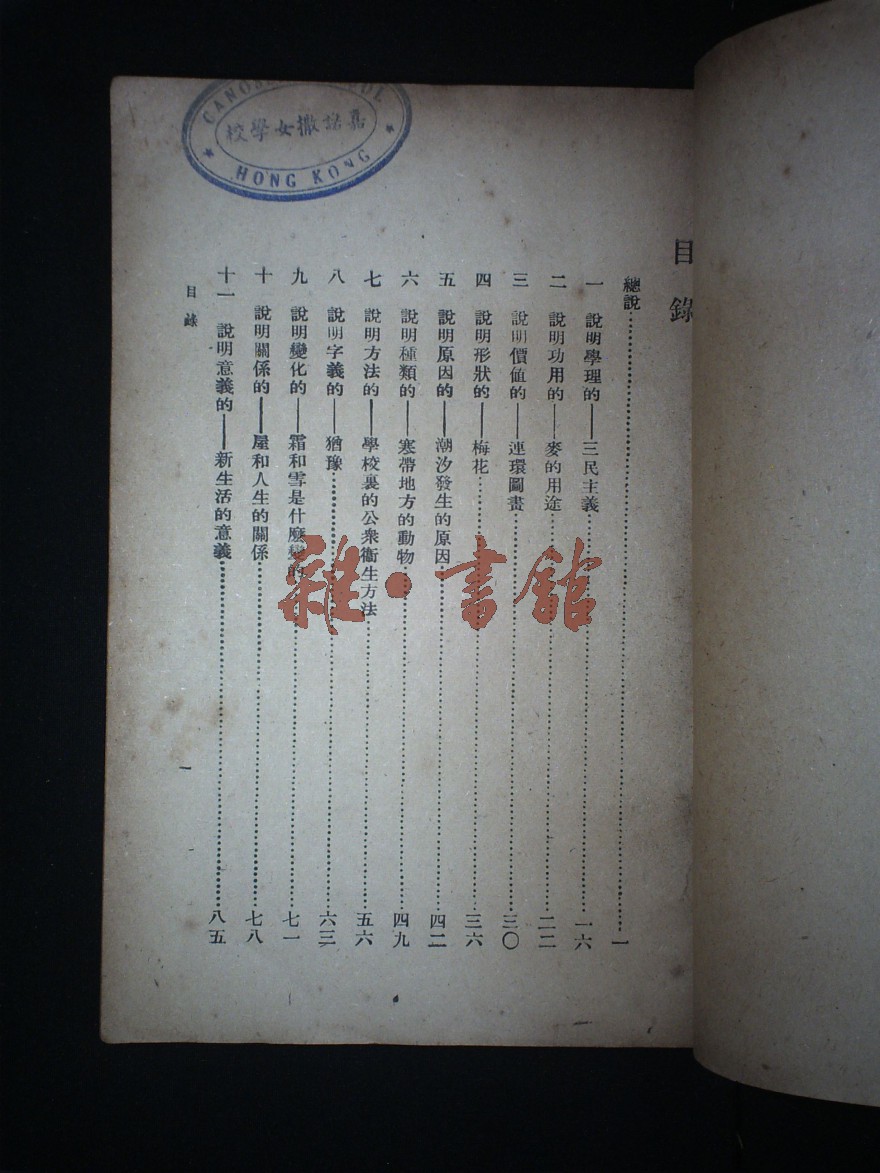 目錄
總說……一
一 說明學理的——三民主義……一六
二 說明功用的——麥的用途……二二
三 說明價值的——連環圖畫……三〇
四 說明形狀的——梅花……三六
五 說明原因的——潮汐發生的原因……四二
六 說明種類的——寒帶地方的動物……四九
七 說明方法的——學校裏的公衆衞生方法……五六
八 說明字義的——猶豫……六三
九 說明變化的——霜和雪是什麽變的……七一
十 說明關係的——屋和人生的關係……七八
十一 說明意義的——新生活的意義……八五
目錄
一
校學女撒諾嘉
HONG KONG
雜·書館